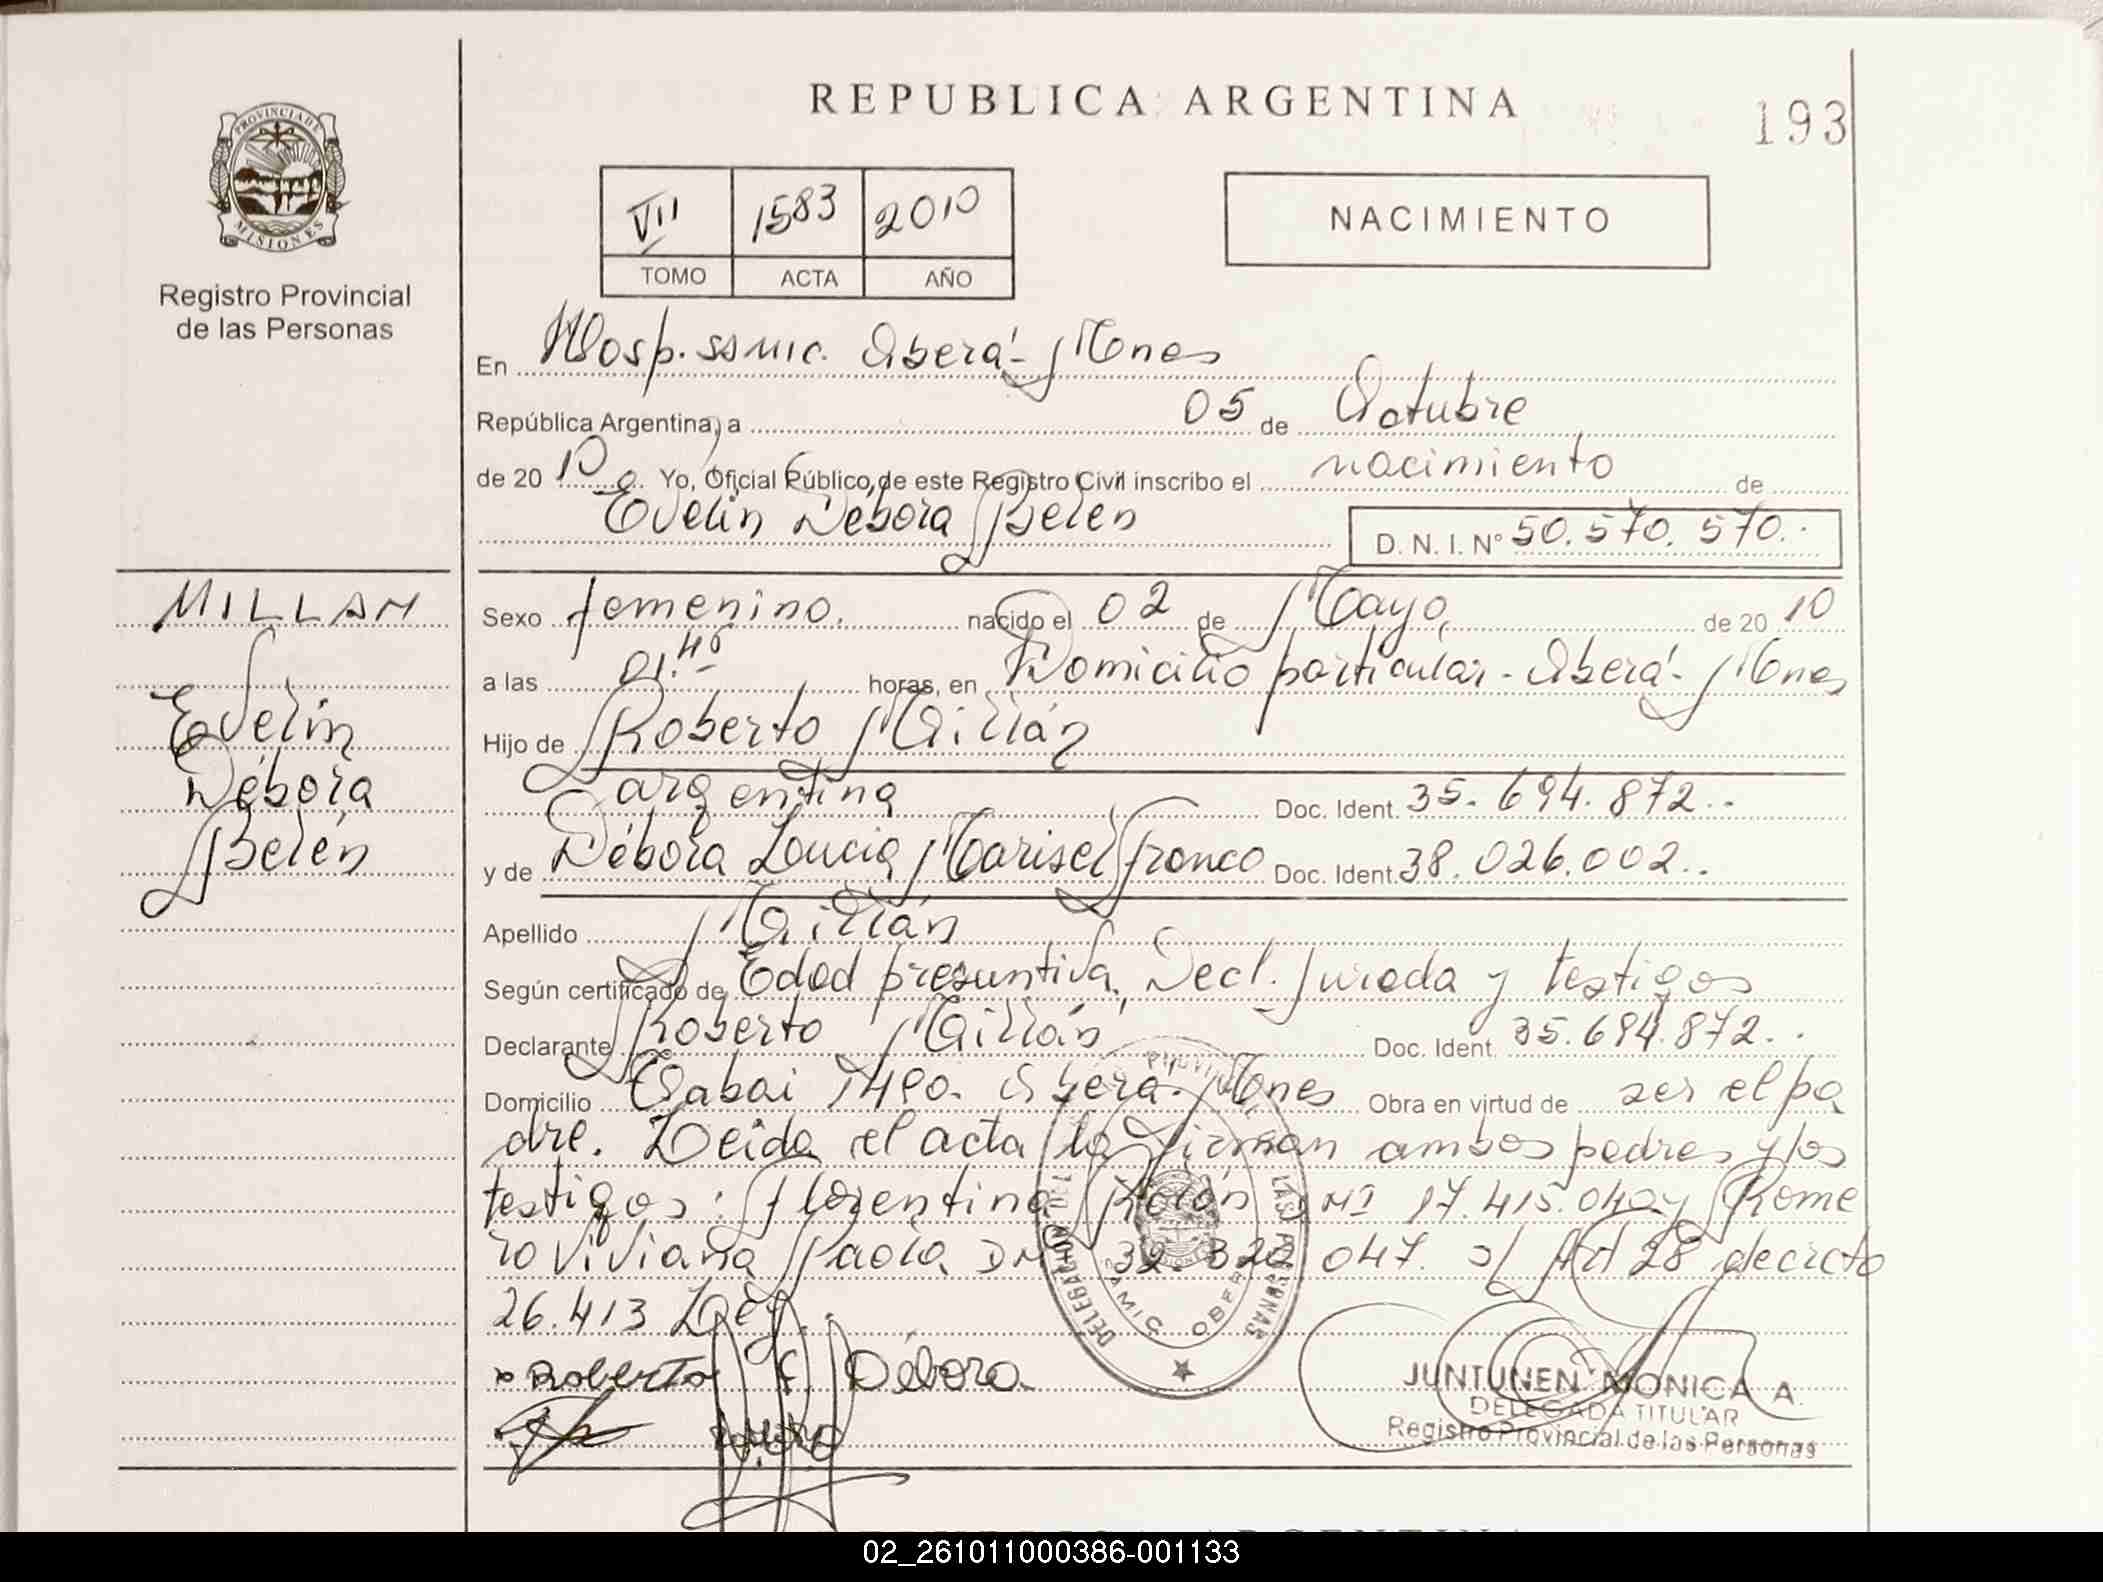 REPUBLICA ARGENTINA
193
PROVINCIA DE
MISIONES
Registro Provincial
de las Personas
VII 1583 2010
TOMO ACTA AÑO
NACIMIENTO
En Hosp. SSMIC. Oberá - Mnes
República Argentina, a 05 de Octubre
de 2010 Yo, Oficial Público de este Registro Civil inscribo el nacimiento de
Evelin Débora Belén D. N. I. N° 50.570.570.
MILLAN
Evelin
Débora
Belén
Sexo femenino. nacido el 02 de Mayo, de 2010
a las 01.40 horas, en Domicilio particular - Oberá - Mnes
Hijo de Roberto Millán
argentina Doc. Ident. 35.694.872..
y de Débora Marisel Franco Doc. Ident. 38.026.002..
Apellido Millán
Según certificado de Edad presuntiva, Decl. Jurada y testigos
Declarante Roberto Millán Doc. Ident. 35.694.872..
Domicilio Oberá - Mnes Obra en virtud de ser el pa
dre. Leida el acta la firman ambos padres y los
testigos: Florentina 17.415.040 y Rome
ro Viviana Paola DNI 32. 047. s/ Art 28 decreto
26.413 Ley.
Roberto Débora
DELEGACION
LAS PERSONAS
JUNTUNEN MONICA A.
DELEGADA TITULAR
Registro Provincial de las Personas
02_261011000386-001133